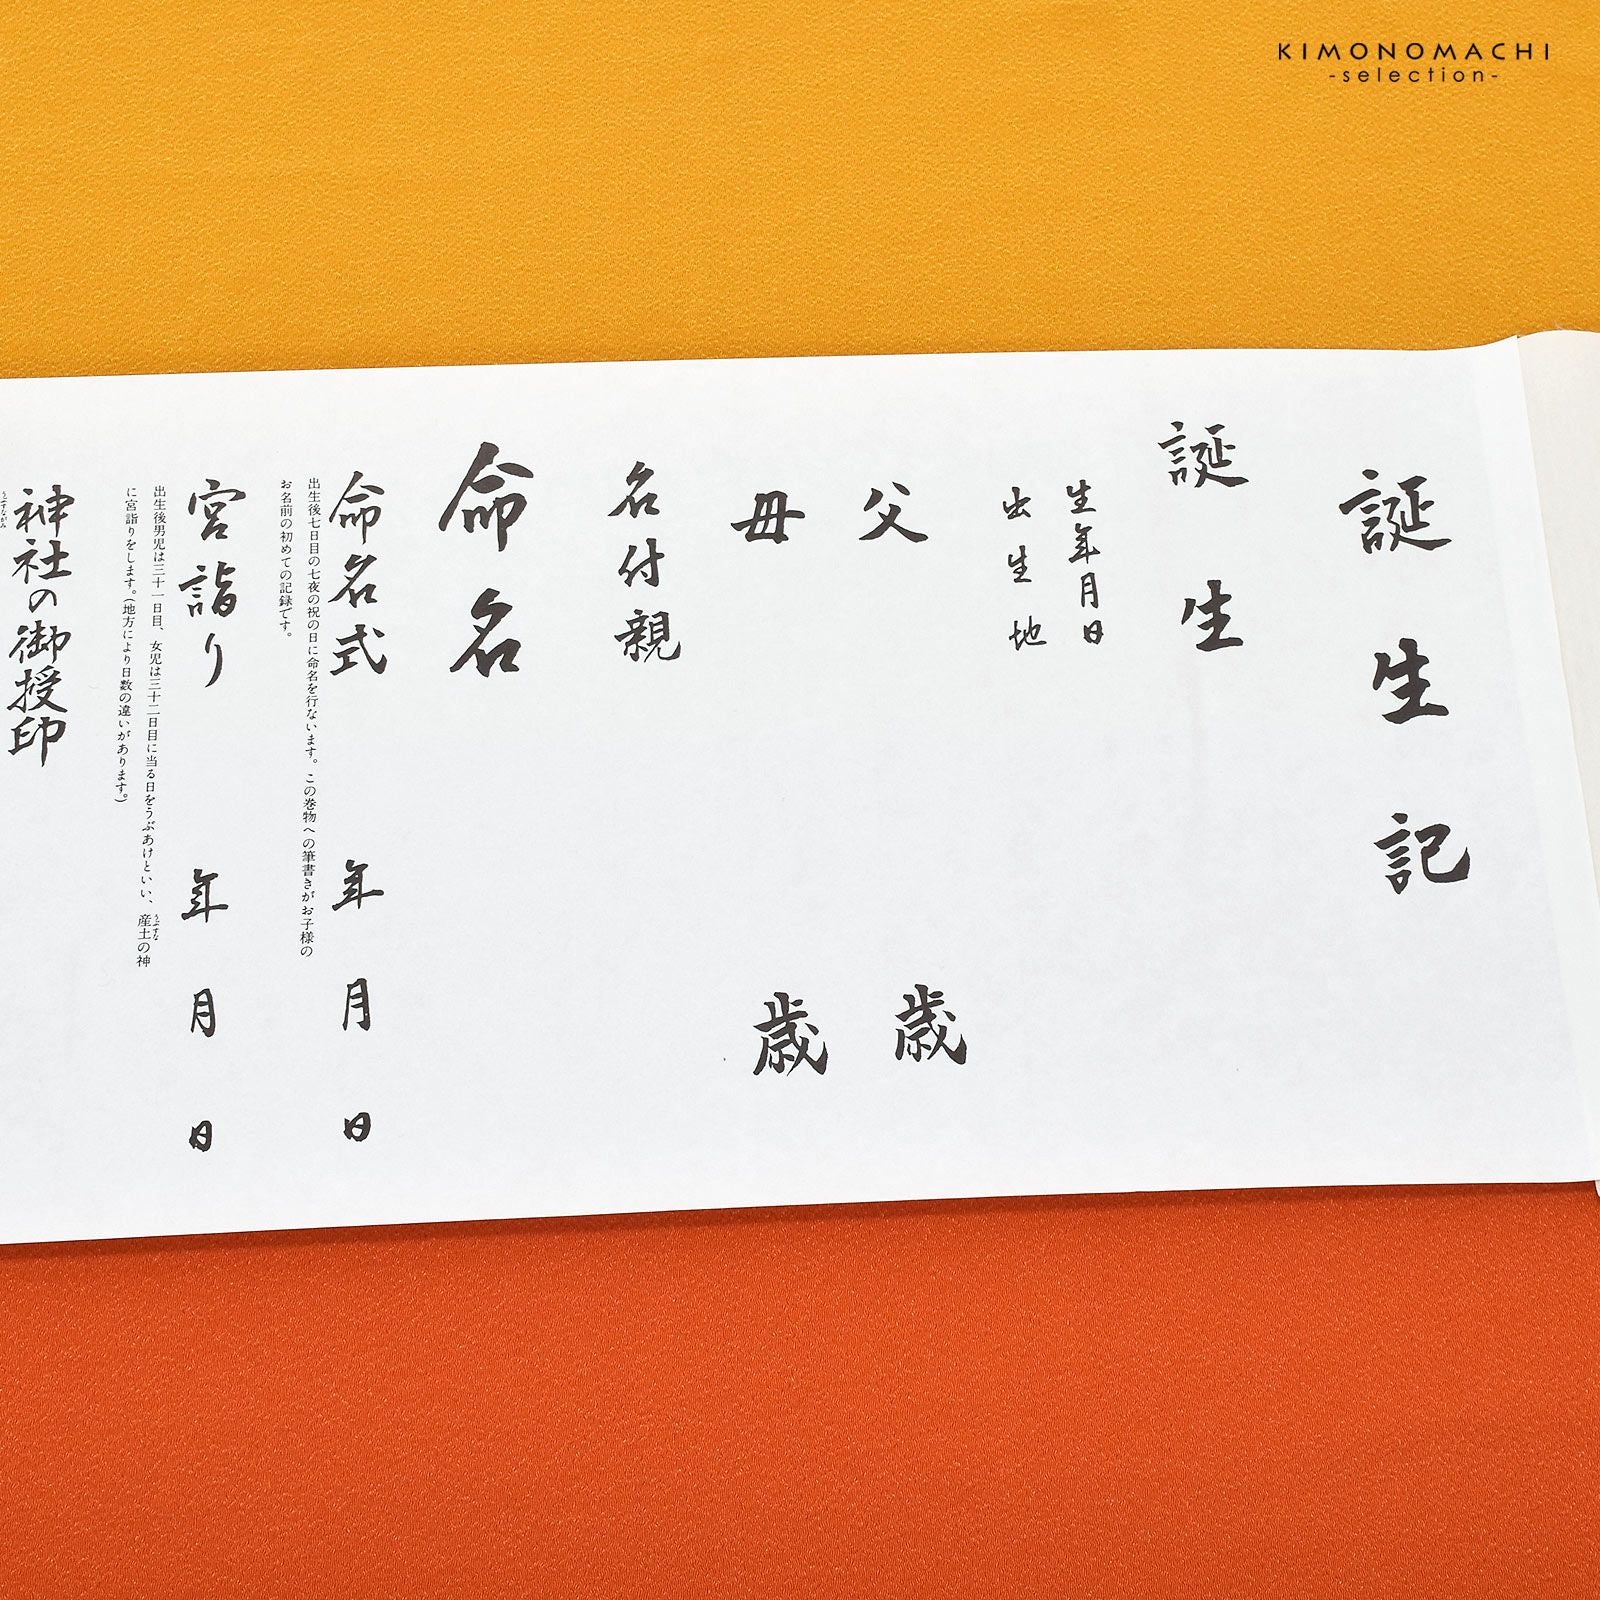 KIMONOMACHI
-selection-
誕生記
誕生
生年月日
出生地
父 歳
母 歳
名付親
命名
命名式 年 月 日
出生後七日目の七夜の祝の日に命名を行ないます。この巻物への筆書きがお子様の
お名前の初めての記録です。
宮詣り 年 月 日
出生後男児は三十一日目、女児は三十二日目に当る日をうぶあけといい、産土の神
うぶすな
に宮詣りをします。(地方により日数の違いがあります。)
神社の御授印
うぶすながみ